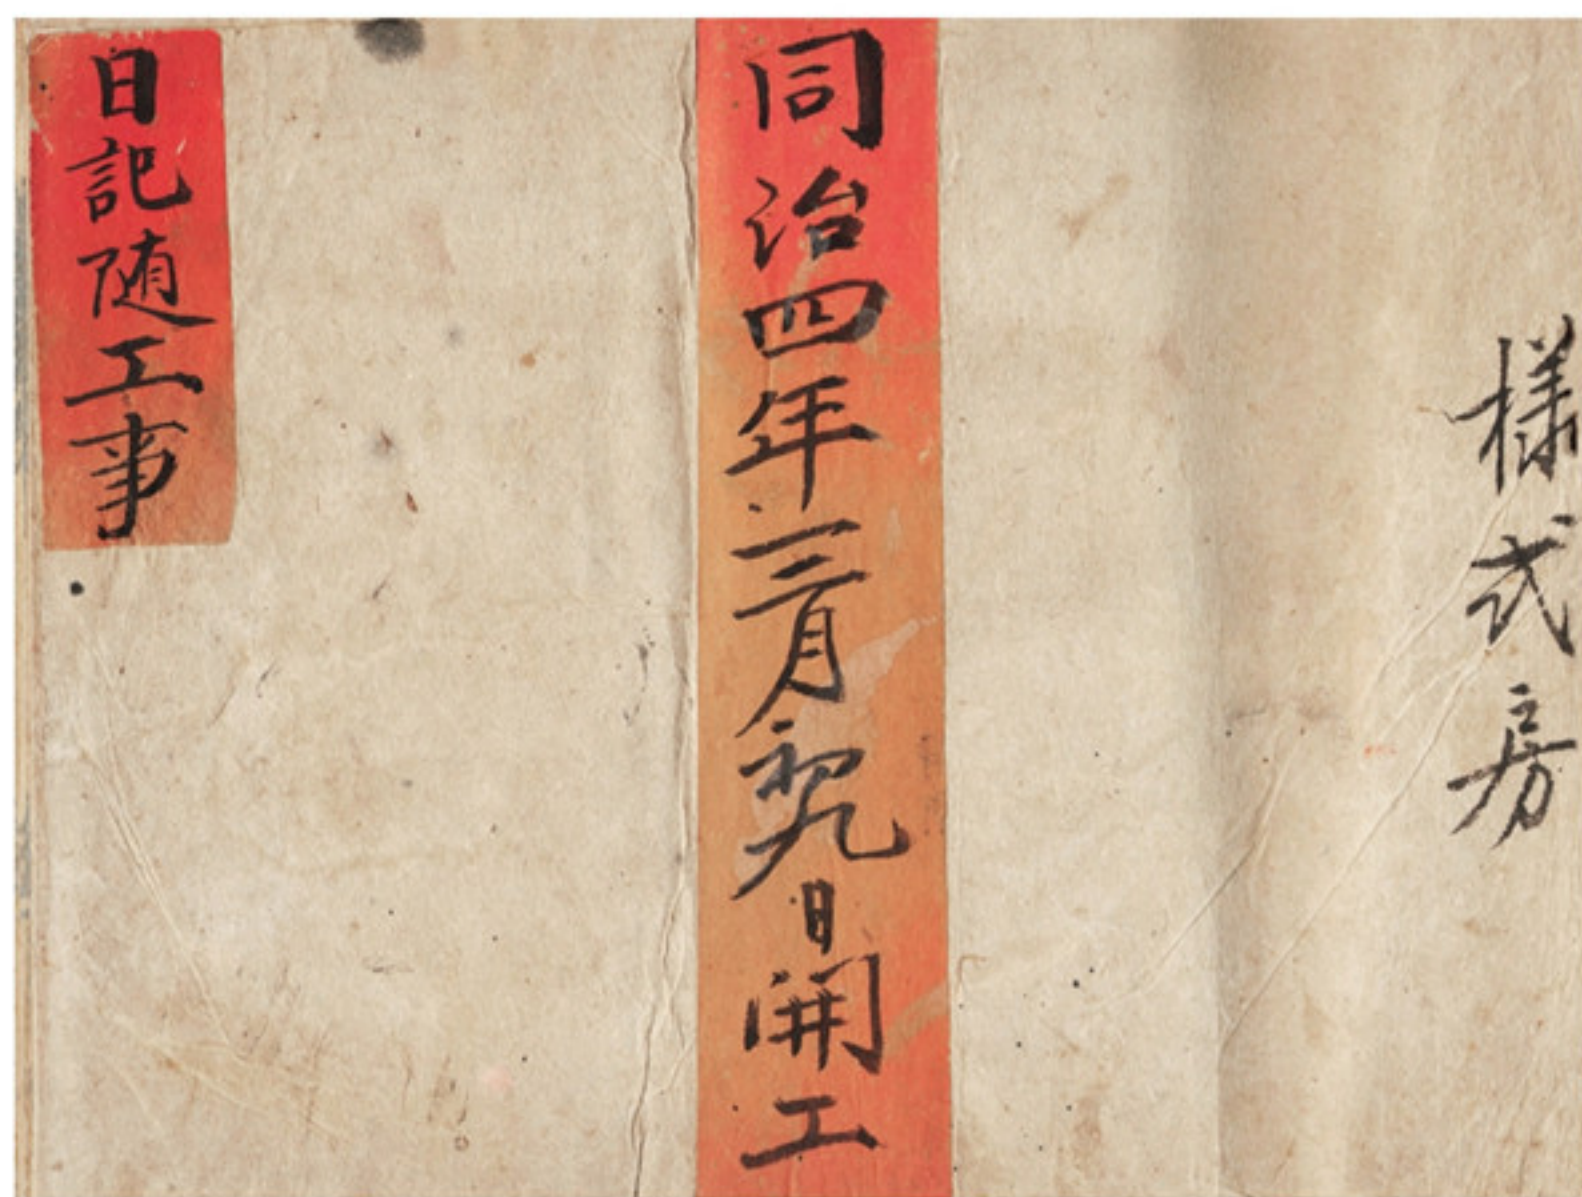 樣式房
同治四年三月初九日開工
日記随工事